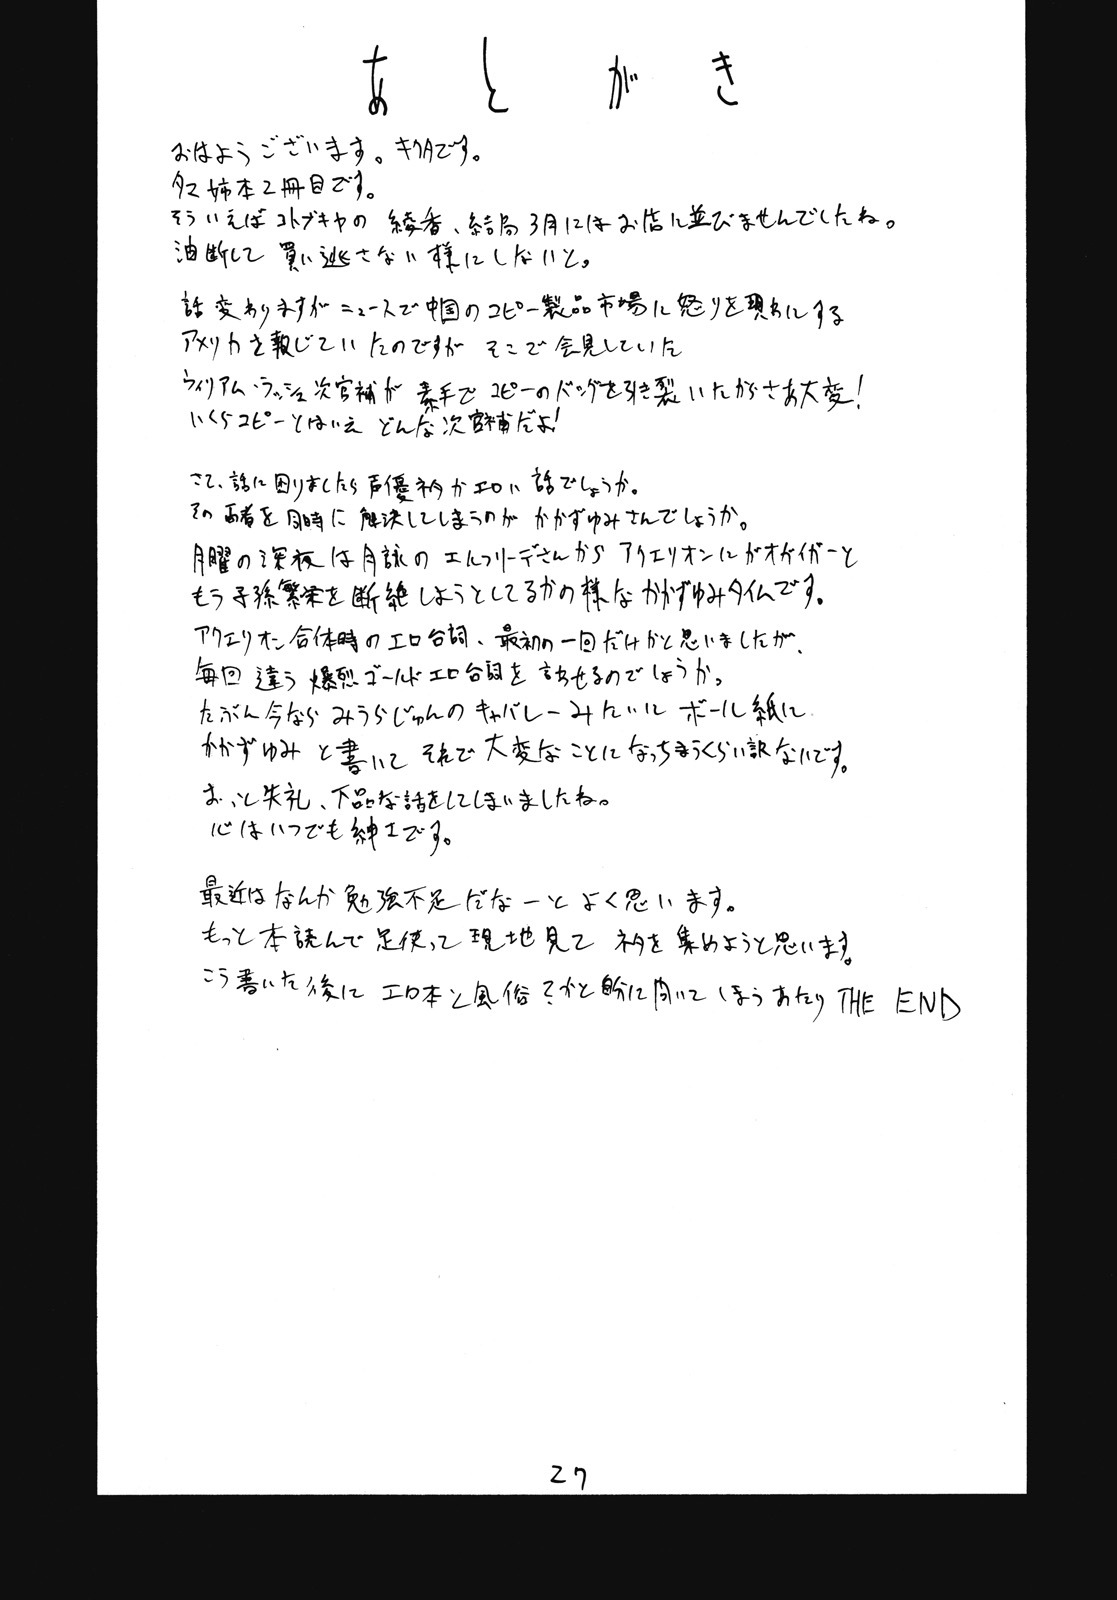 あとがき
おはようございます。キクタです。
タマ姉本2冊目です。
そういえばコトブキヤの 綾香、結局3月にはお店に並びませんでしたね。
油断して 買い逃さない様にしないと。
話変わりますが ニュースで中国のコピー製品市場に怒りを現わにする
アメリカを報じていたのですが そこで会見していた
ウィリアム・ラッシュ次官補が 素手で コピーのバッグを引き裂いたからさあ大変!
いくらコピーとはいえ どんな次官補だよ!
さて、話に困りましたら声優ネタかエロい話でしょうか。
その両者を同時に 解決してしまうのが かかずゆみさんでしょうか。
月曜の深夜は月詠の エルフリーデさんから アクエリオンにガオガイガーと
もう子孫繁栄を断絶しようとしてるかの様な かかずゆみタイムです。
アクエリオン合体時のエロ台詞、最初の一回だけかと思いましたが、
毎回 違う 爆烈ゴールドエロ台詞を 言わせるのでしょうか。
たぶん今なら みうらじゅんの キャバレーみたいに ボール紙に
かかずゆみ と書いて それで大変なことになっちまうくらい訳ないです。
おっと失礼、下品な話をしてしまいましたね。
心はいつでも紳士です。
最近はなんか 勉強不足だなーと よく思います。
もっと 本読んで 足使って 現地見て ネタを集めようと思います。
こう書いた後に エロ本と風俗?かと 聞いてしまうあたり THE END
27